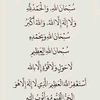 سُبْحَانَ اللهِ، وَالْحَمْدُ لِلَّهِ
وَلَا إِلَهَ إِلَّا اللهُ، وَاللهُ أَكْبَرُ
سُبْحَانَ اللهِ وَبِحَمْدِهِ
سُبْحَانَ اللهِ الْعَظِيْمِ
لَا حَوْلَ وَلَا قُوَّةَ إِلَّا بِاللهِ
أَسْتَغْفِرُ اللهَ الْعَظِيْمَ الَّذِي لَا إِلَهَ إِلَّا هُوَ
الْحَيُّ الْقَيُّوْمُ وَأَتُوْبُ إِلَيْهِ